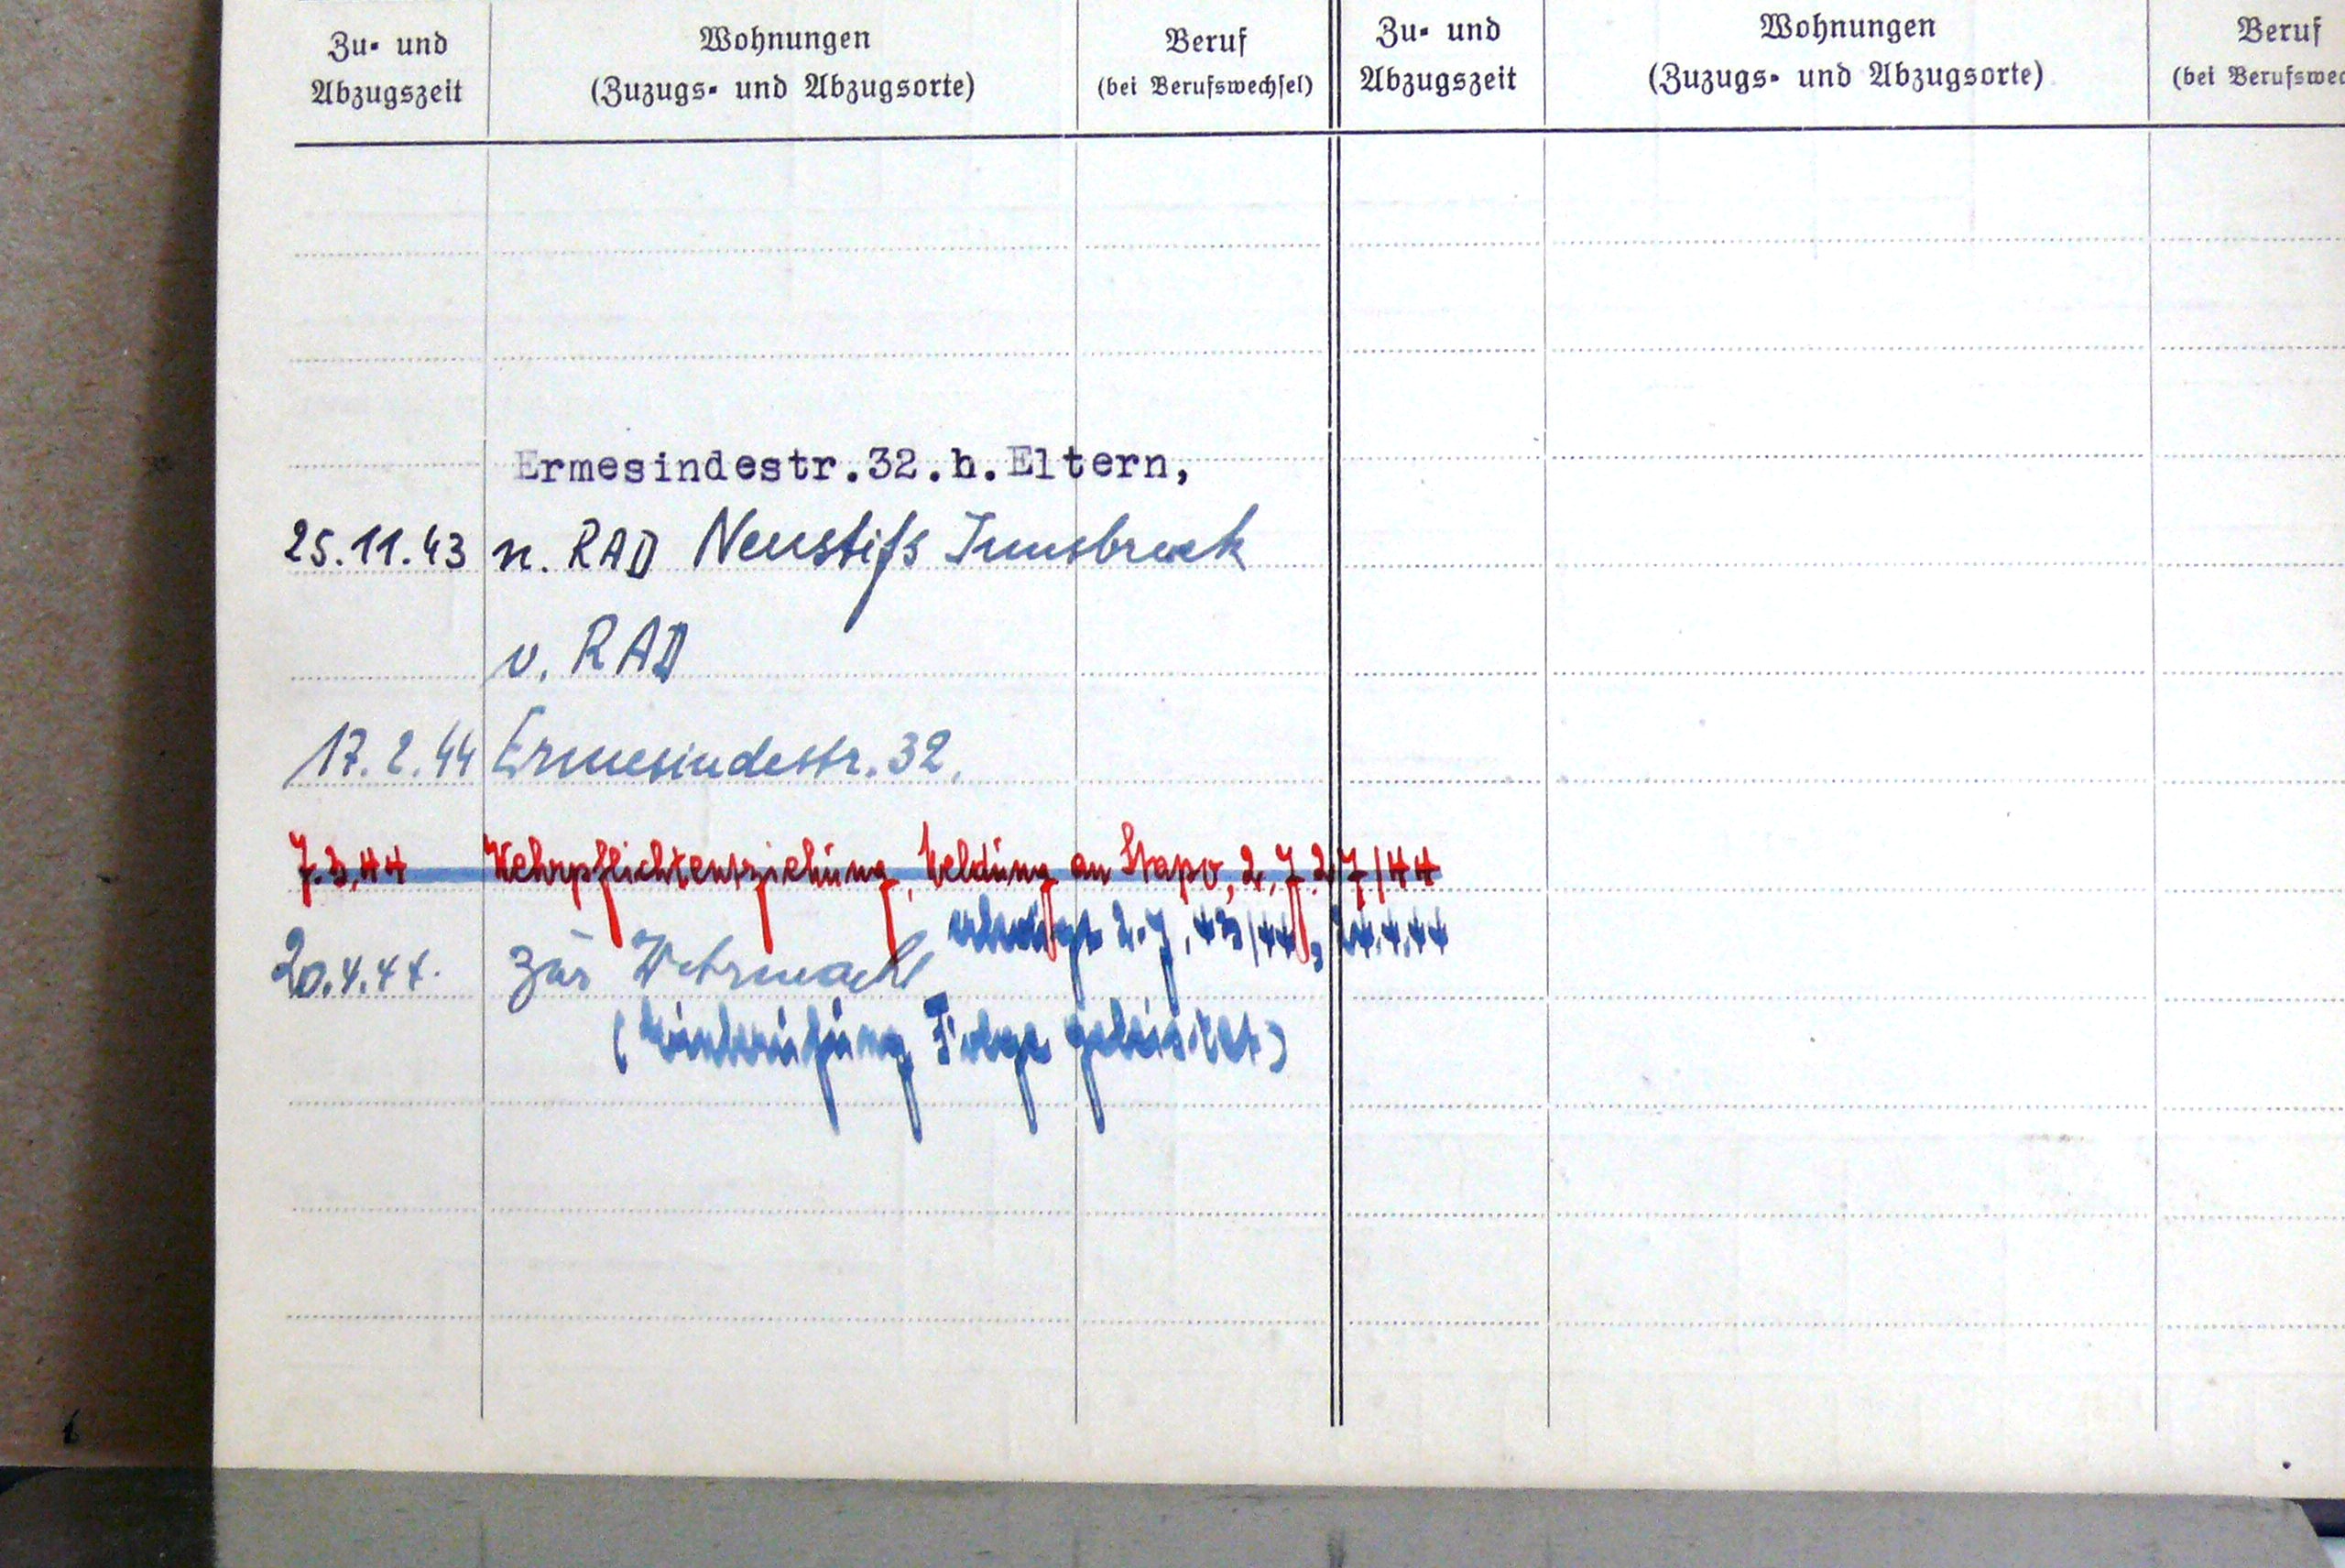 Zu- und Abzugszeit
Wohnungen
(Zuzugs- und Abzugsorte)
Beruf
(bei Berufswechsel)
Zu- und Abzugszeit
Wohnungen
(Zuzugs- und Abzugsorte)
Beruf
(bei Berufswec
Ermesindestr.32.h.Eltern,
25.11.43 n. RAD Neustift Innsbruck
v. RAD
17.2.44 Ermesindestr. 32.
7.3.44 Wehrpflichtentziehung, Meldung an Stapo, 2.7.27/44
erledigt 2.7.43/44, 24.4.44
20.4.44. zur Wehrmacht
(Einberufung Folge geleistet)